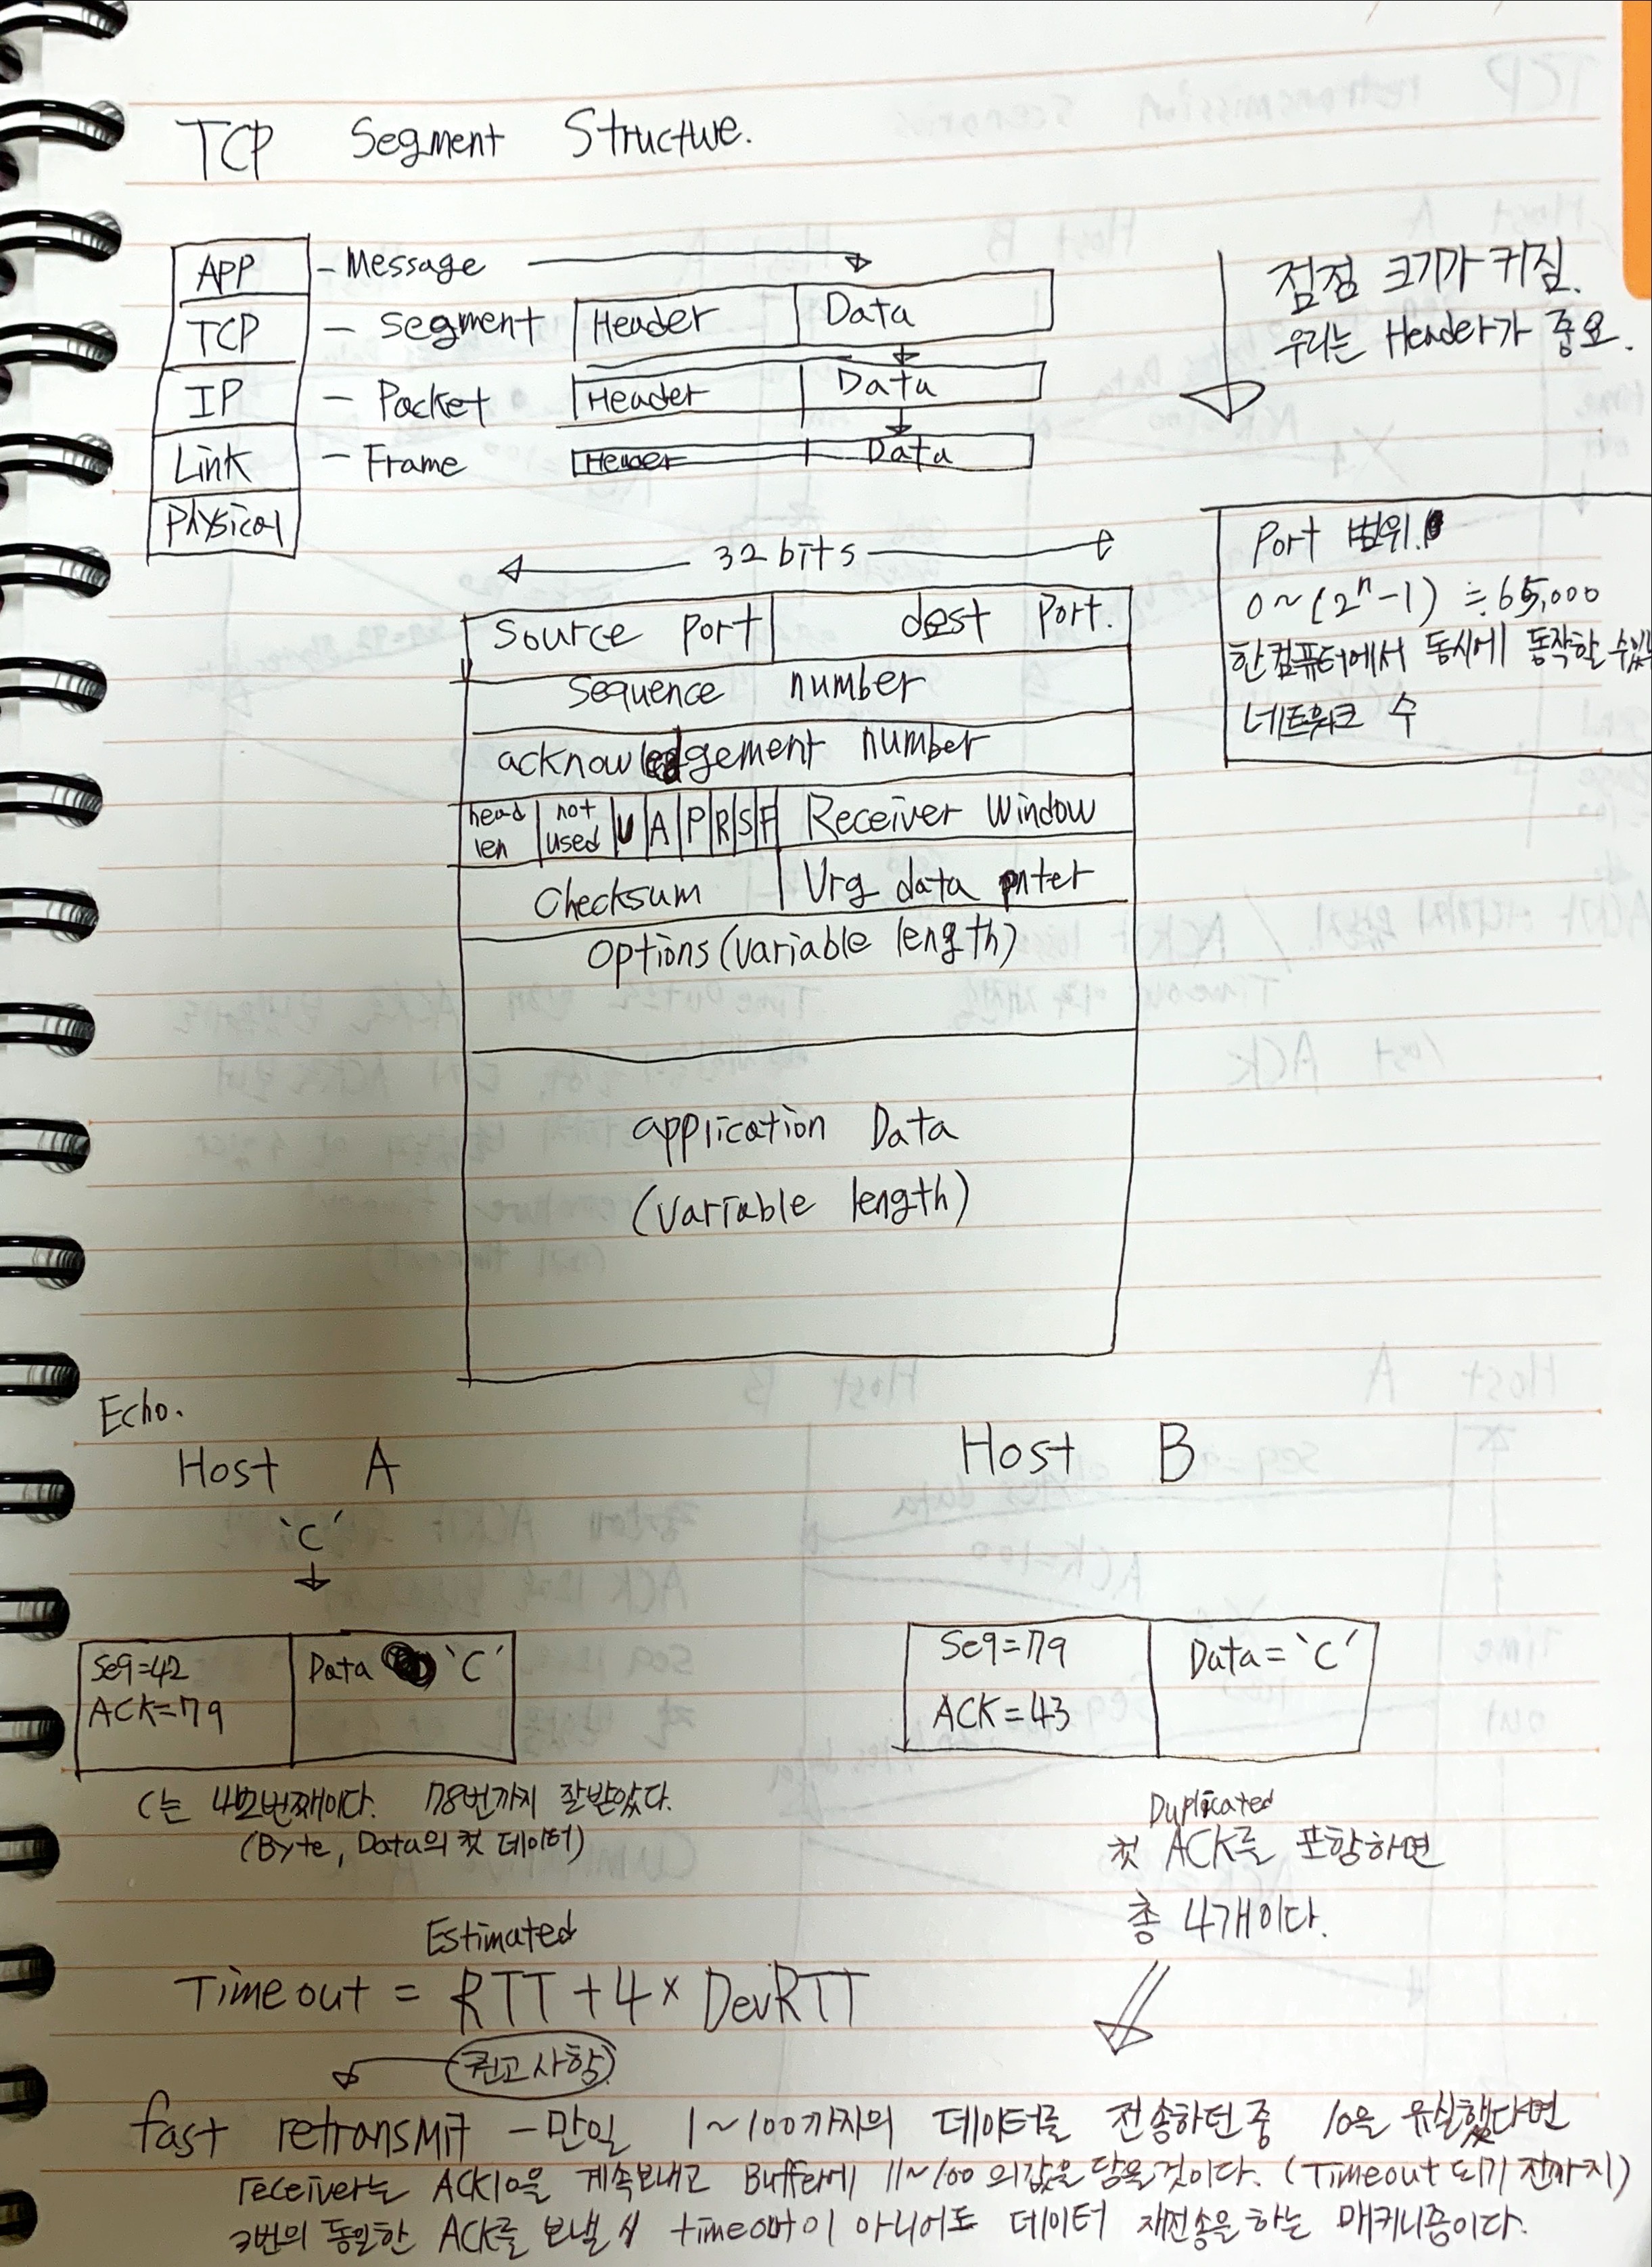 TCP Segment Structure.
APP - Message
점점 크기가 커짐.
TCP - Segment Header Data
우리는 Header가 중요.
IP - Packet Header Data
Link - Frame Header Data
Physical
32 bits
Port 범위.
0 ~ (2ⁿ-1) ≒ 65,000
한 컴퓨터에서 동시에 동작할 수있는
네트워크 수
Source Port dest Port.
Sequence number
acknowledgement number
head len not used U A P R S F Receiver Window
Checksum Urg data pnter
Options (variable length)
application Data
(variable length)
Echo.
Host A
'C'
Seq=42 Data 'C'
ACK=79
C는 42번째이다. 78번까지 잘받았다.
(Byte, Data의 첫 데이터)
Host B
Seq=79 Data='C'
ACK=43
Duplicated
첫 ACK를 포함하면
총 4개이다.
Estimated
Timeout = RTT + 4 × DevRTT
권고사항
fast retransmit - 만일 1~100까지의 데이터를 전송하던중 10을 유실했다면
receiver는 ACK10을 계속보내고 Buffer에 11~100 의값을 담을것이다. (Timeout 되기 전까지)
3번의 동일한 ACK를 보낼 시 timeout이 아니어도 데이터 재전송을 하는 매커니즘이다.